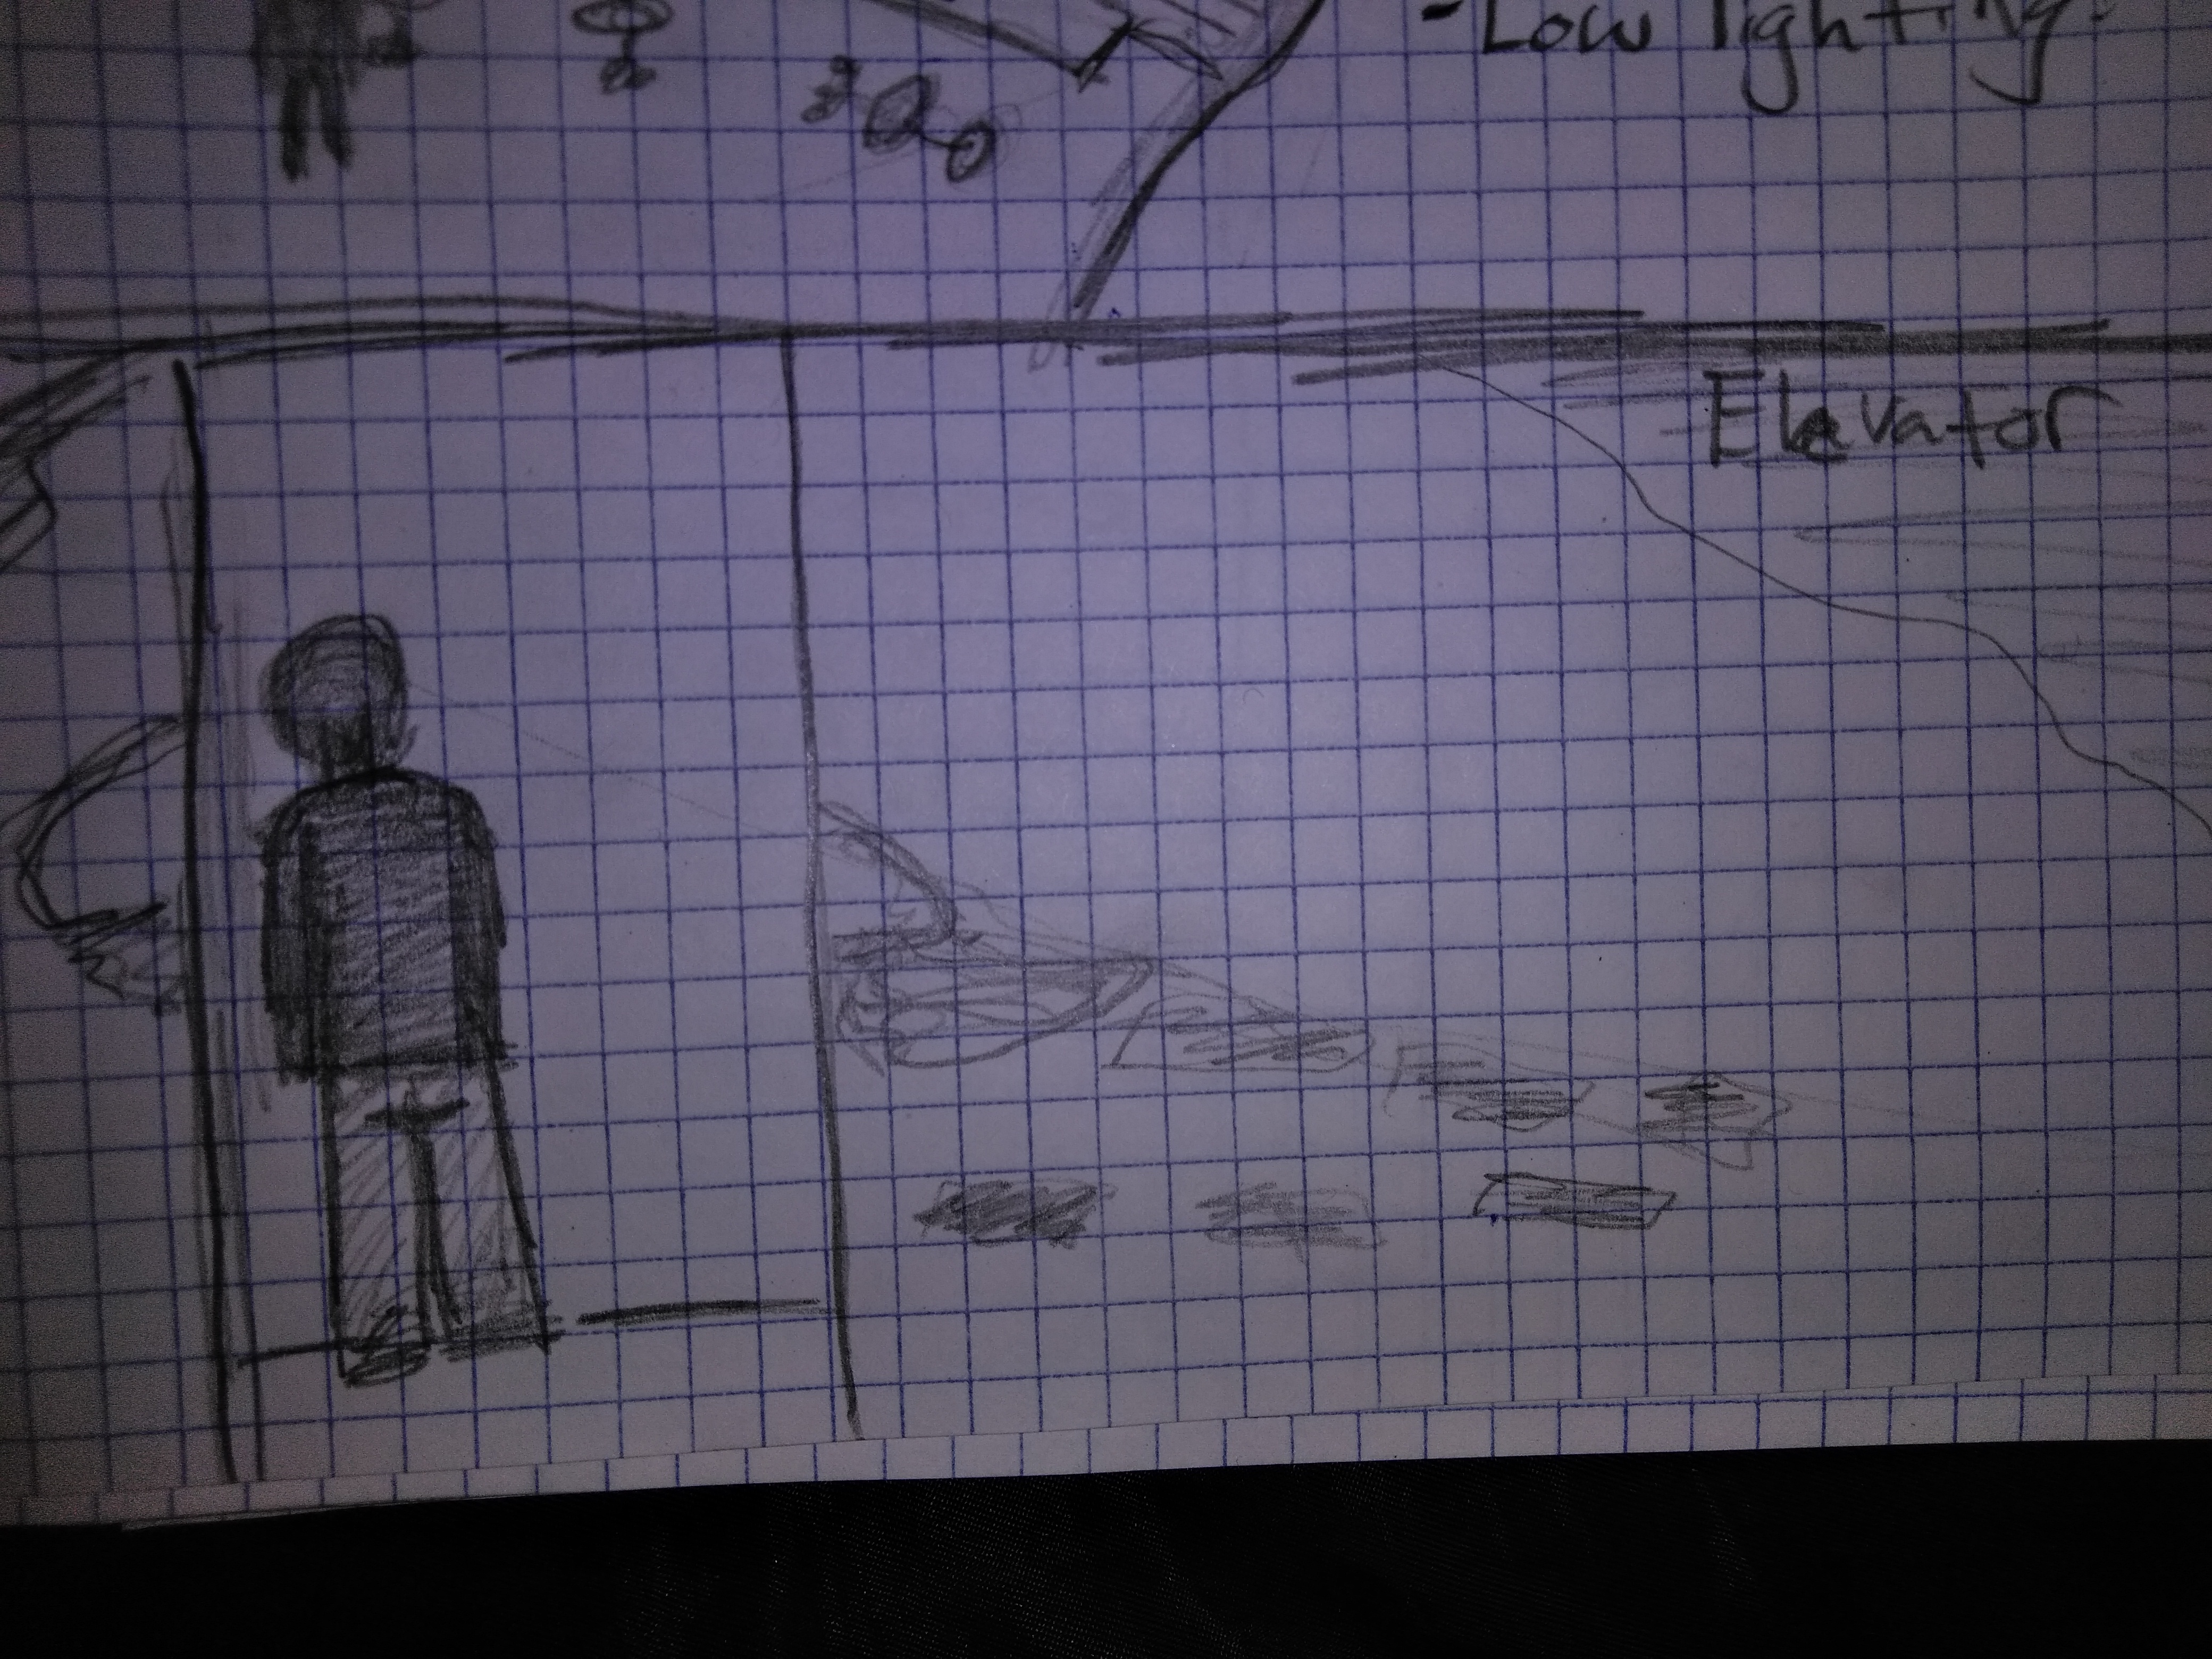 - Low lighting.
Elevator